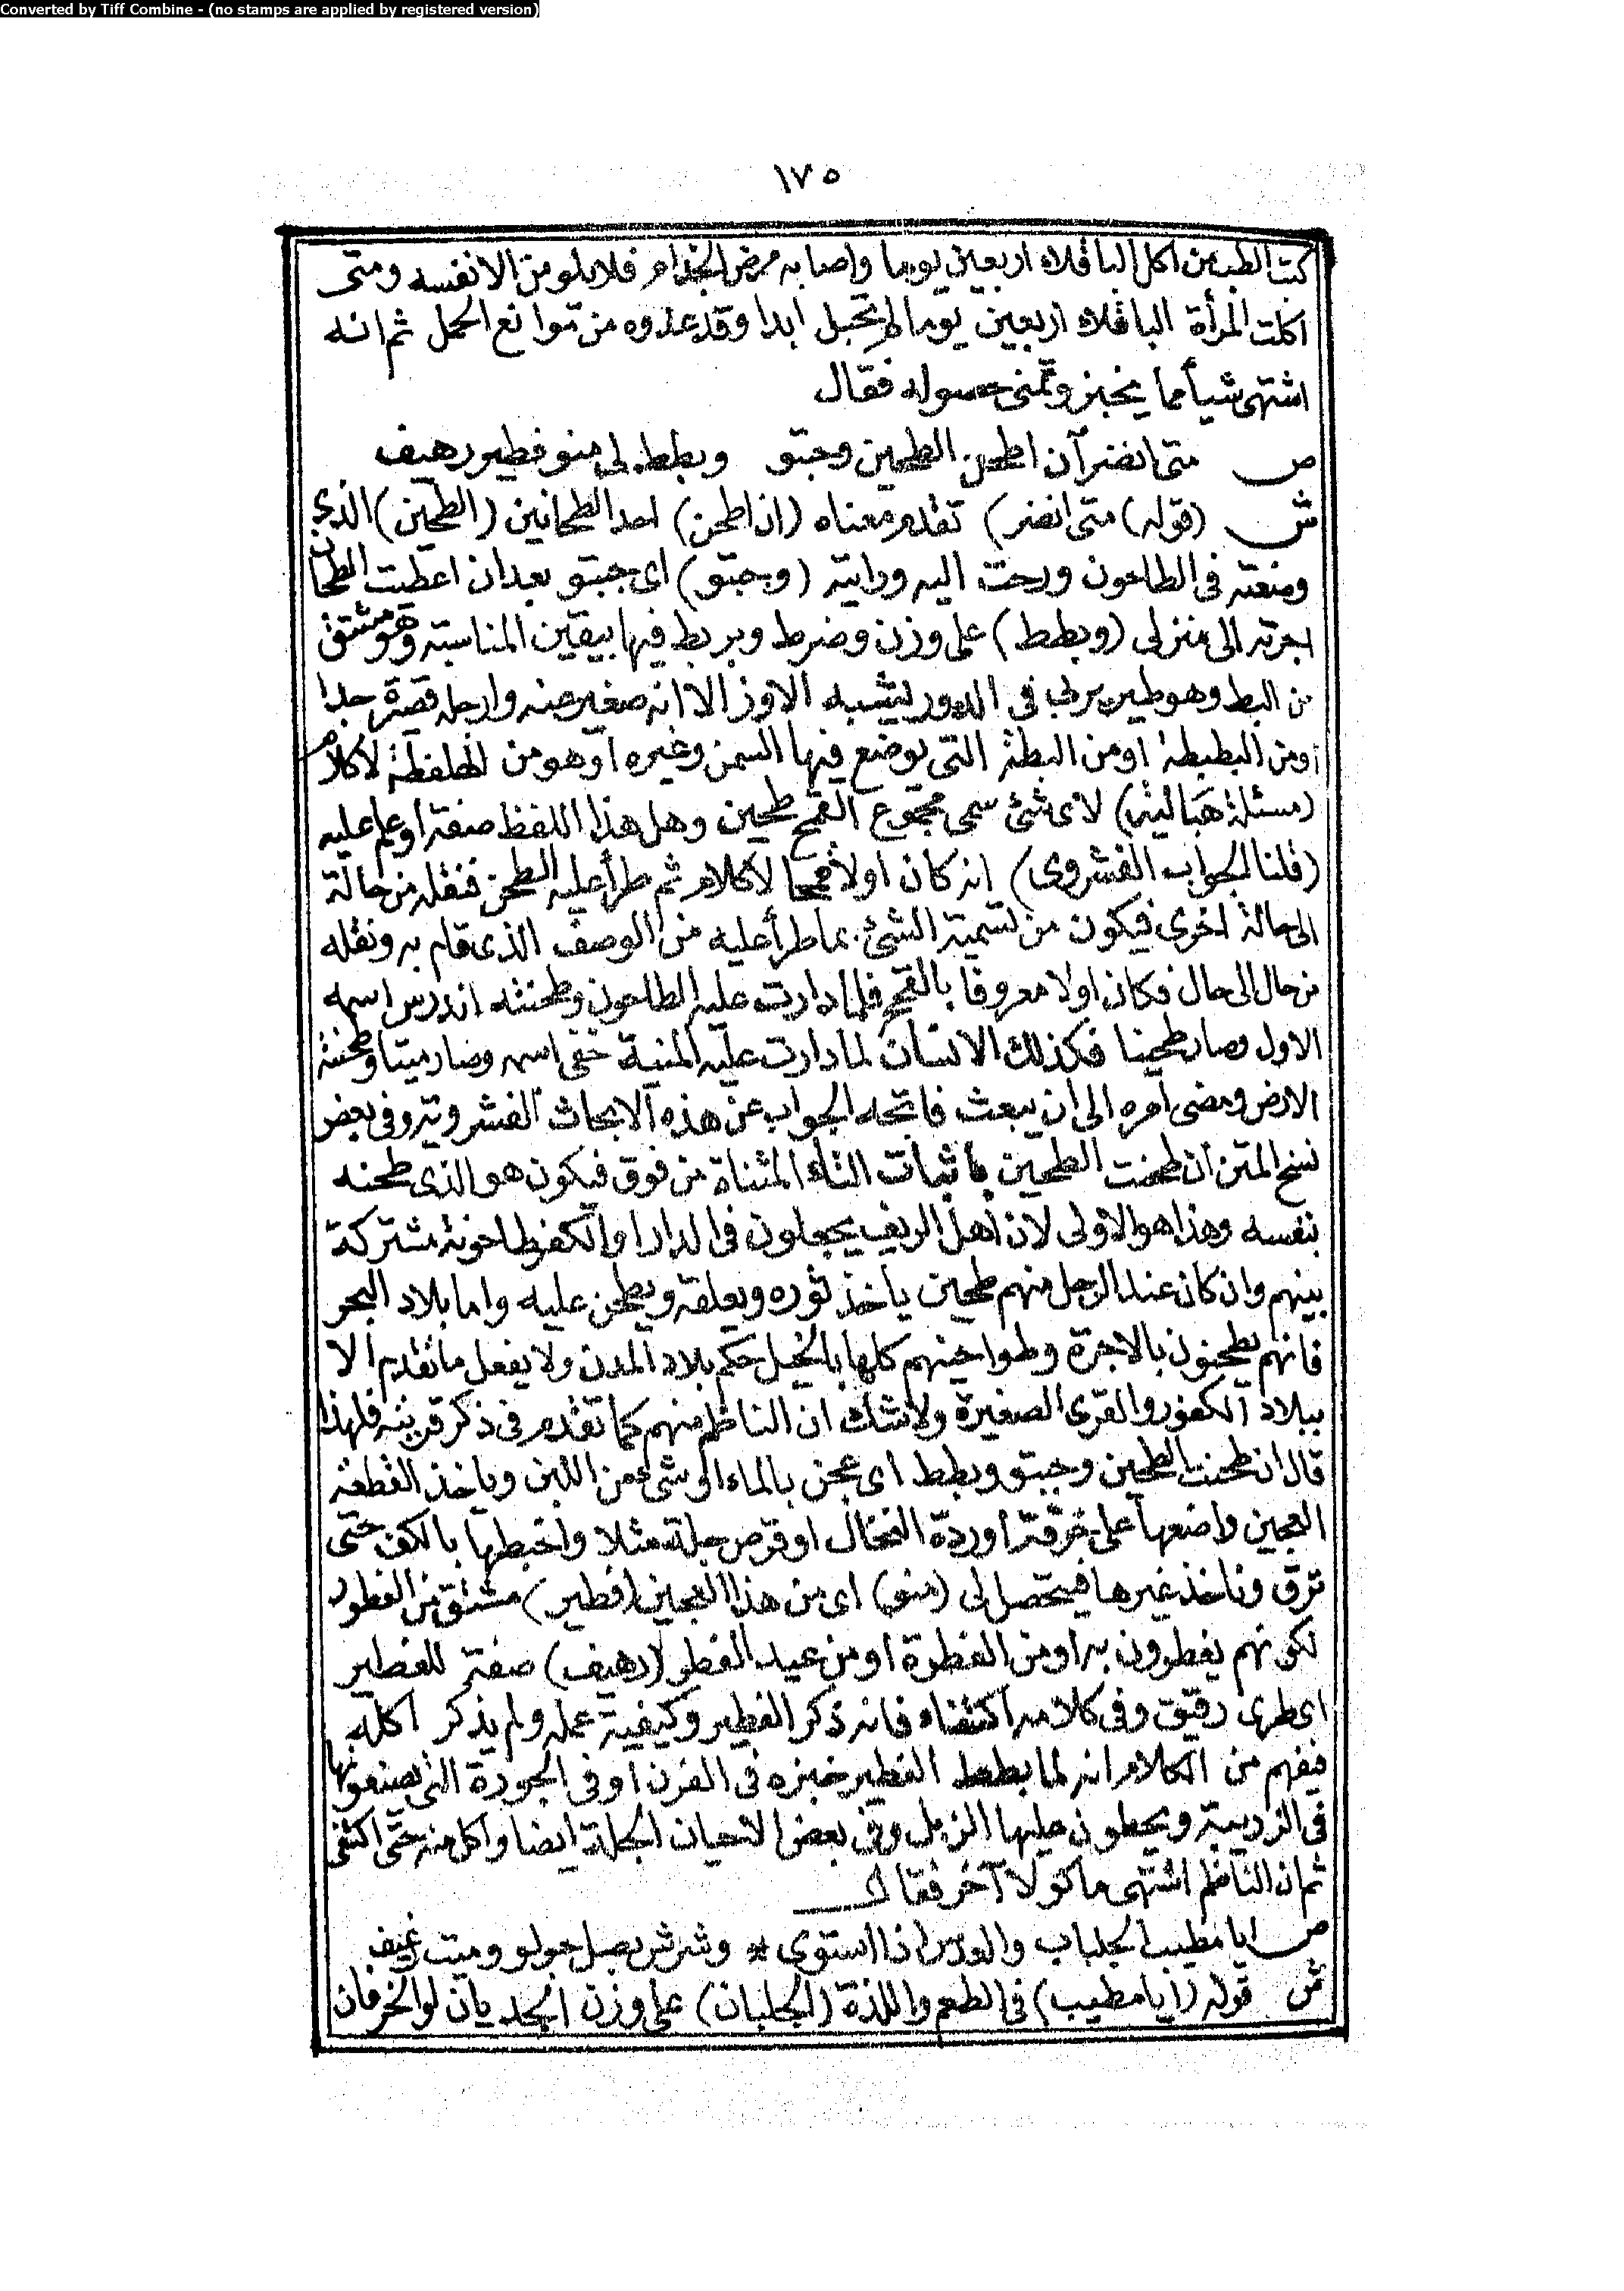 Converted by Tiff Combine - (no stamps are applied by registered version)
١٧٥
كتب الطب من اكل الباقلاء اربعين يوما واصابه مرض الجذام فلا يلومن الا نفسه ومتى
اكلت المرأة الباقلاء اربعين يوما لم تحبل ابدا وقد عدوه من موانع الحمل ثم انه
اشتهى شيأ مما يخبز وتمنى حصوله فقال
ص متى انضر آن اطحن الطحين وجبتو وبطط لى منو فطير رهيف
ش (قوله) متى انضر) تقدم معناه (ان اطحن) احد الطحانين (الطحين) الذى
وضعته فى الطاحون ورحت اليه ورايته (وجبتو) اى جبتو بعد ان اعطت الطحان
اجرته الى منزلى (وبطط) على وزن وضرط وبربط فيها بيقين المناسبة وهو مشتق
من البط وهو طير يربى فى الدور ليشبه الاوز الا انه صغير منه وارجله قصيرة جدا
او من البطبطة او من البطة التى يوضع فيها السمن وغيره او هو من اللفظة لا كلام
(مسئلة هبالية) لاى شئ سمى مجموع القمح طحين وهل هذا اللفظ صفة او علم عليه
(قلنا الجواب الفشروى) انه كان اولا قمحا لا كلام ثم طرأ عليه الطحن فنقله من حالة
الى حالة اخرى فيكون من تسمية الشئ بما طرأ عليه من الوصف الذى قام به ونقله
من حال الى حال فكان اولا معروفا بالقمح فلما دارت عليه الطاحون وطحنته اندرس اسمه
الاول وصار طحينا فكذلك الانسان لما دارت عليه المنية خفى اسمه وصار ميتا وطحنته
الارض ومضى امره الى ان يبعث فاتجه الجواب عن هذه الابحاث الفشروية وفى بعض
نسخ المتن ان طحنت الطحين باثبات التاء المثناة من فوق فيكون هو الذى طحنه
بنفسه وهذا هو الاولى لان اهل الريف يجعلون فى الدار او الكفر طاحونة مشتركة
بينهم وان كان عند الرجل منهم طحين ياخذ ثوره ويعلقه ويطحن عليه واما بلاد البحر
فانهم يطحنون بالاجرة وطواحينهم كلها بالخيل حكم بلاد المدن ولا يفعل ما تقدم الا
ببلاد الكفور والقرى الصغيرة ولا شك ان الناظم منهم كما تقدم فى ذكر قريته فلهذا
قال ان طحنت الطحين وجبتو وبطط اى عجن بالماء او شئ من اللبن وياخذ القطعة
العجين واضعها على خرقة او ردة النخال او قرص جلة مثلا واخبطها بالكف حتى
ترق وناخذ غيرها فيتحصل لى (منو) اى من هذا العجين (فطير) مشتق من الفطور
لكونهم يفطرون به او من الفطرة او من عيد الفطر (رهيف) صفة للفطير
اى طرى رقيق وفى كلامه اكتفاء فانه ذكر الفطير وكيفية عمله ولم يذكر اكله
فيفهم من الكلام انه لما بطط الفطير خبزه فى الفرن او فى الجورة التى يصنعونها
فى الزريبة ويحطون عليها الزبل وفى بعض الاحيان الجلة ايضا واكل منه حتى اكتفى
ثم ان الناظم اشتهى ماكولا آخر فقال
ص ايا مطيب الجلباب والعدس اذا استوى * وشرش بصل حولو وميت رغيف
ش قوله (ايا مطيب) فى الطعم واللذة (الجلبان) على وزن الجديان لو الخرفان